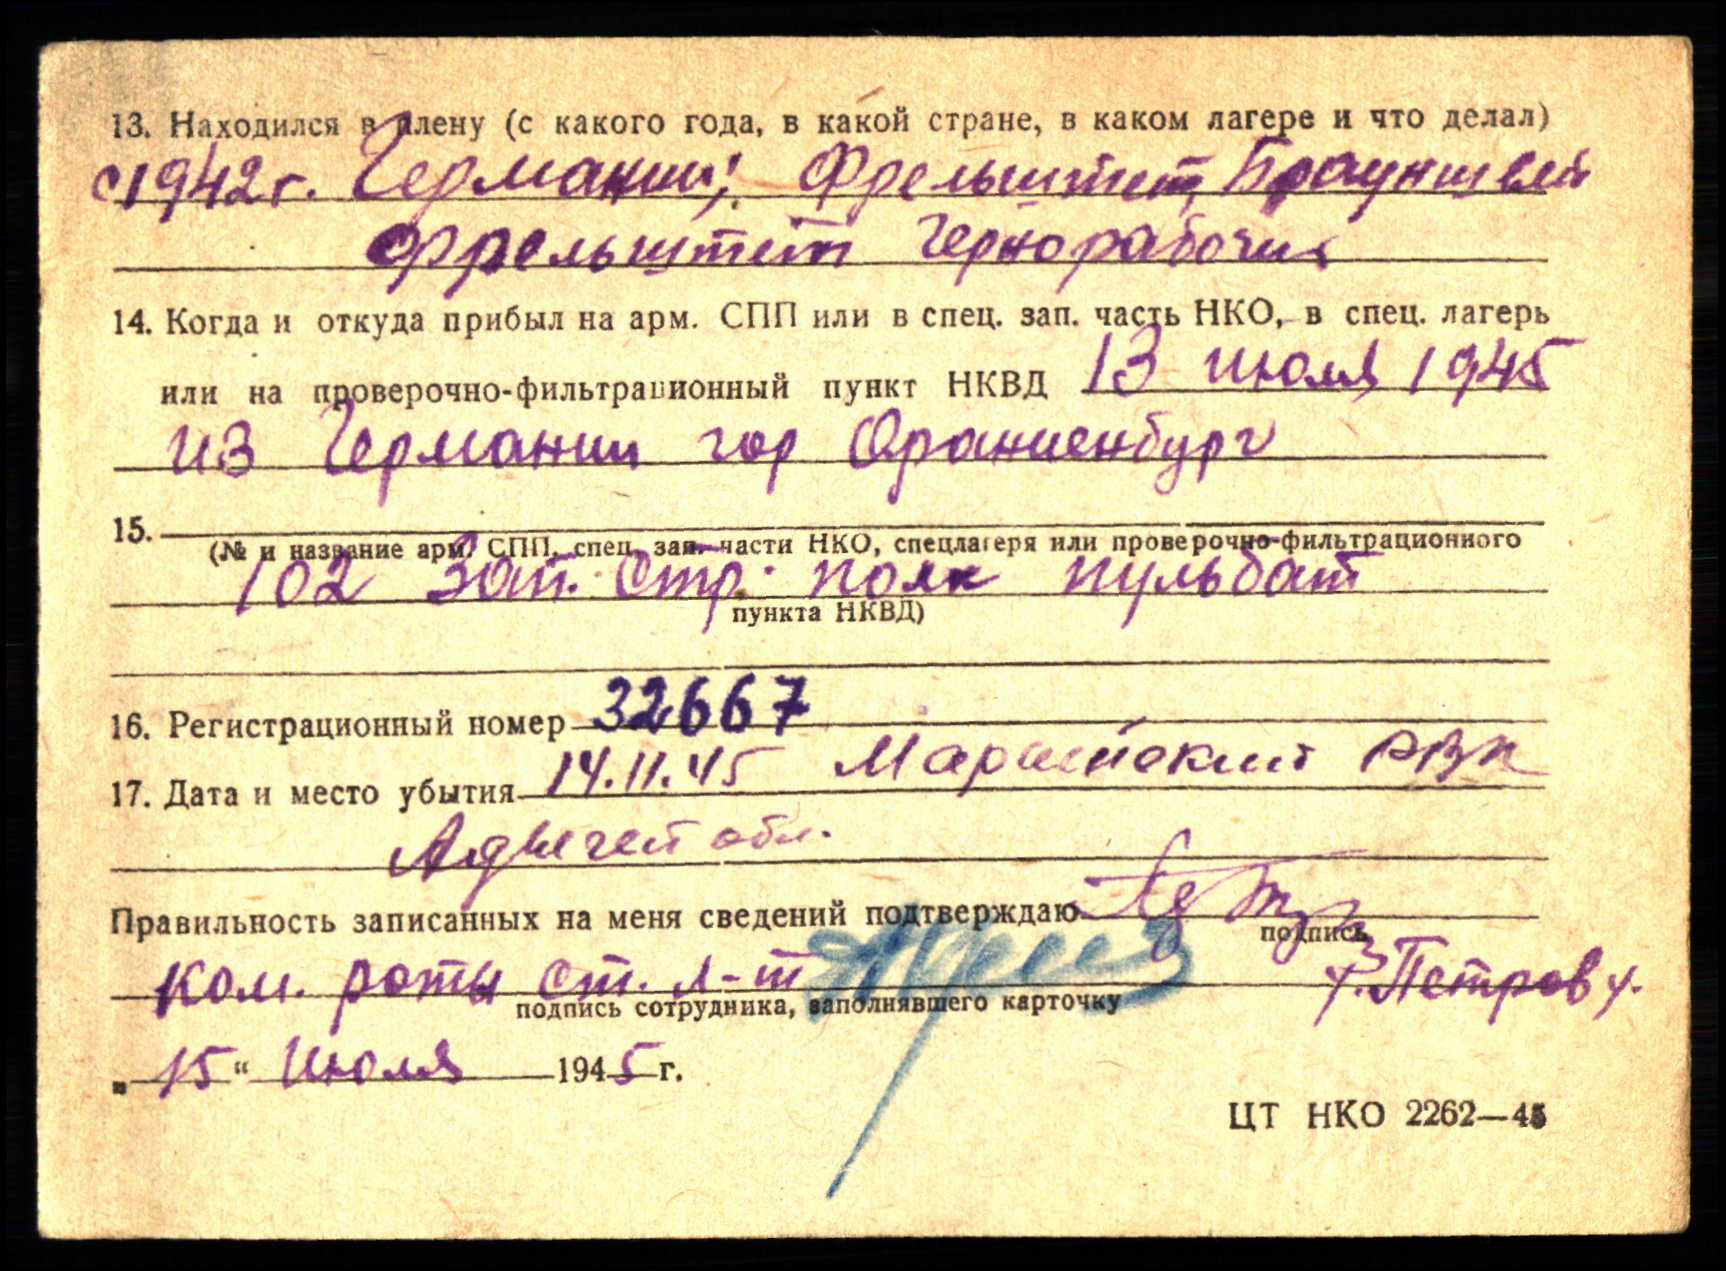 13. Находился в плену (с какого года, в какой стране, в каком лагере и что делал)
с 1942 г. Германии; Фрельштет, Брауншвей
Фрельштет Чернорабочик
14. Когда и откуда прибыл на арм. СПП или в спец. зап. часть НКО, в спец. лагерь
или на проверочно-фильтрационный пункт НКВД 13 июля 1945
из Германии гор Ораниенбург
15.
(№ и название арм. СПП, спец. зап. части НКО, спецлагеря или проверочно-фильтрационного
102 Зап. Стр. полк пульбат
пункта НКВД)
16. Регистрационный номер 32667
17. Дата и место убытия 14.11.45 РВК
Адыгей обл.
Правильность записанных на меня сведений подтверждаю
подпись
ком. роты ст. л-т Петров
подпись сотрудника, заполнявшего карточку
„15“ Июля 1945 г.
ЦТ НКО 2262—45